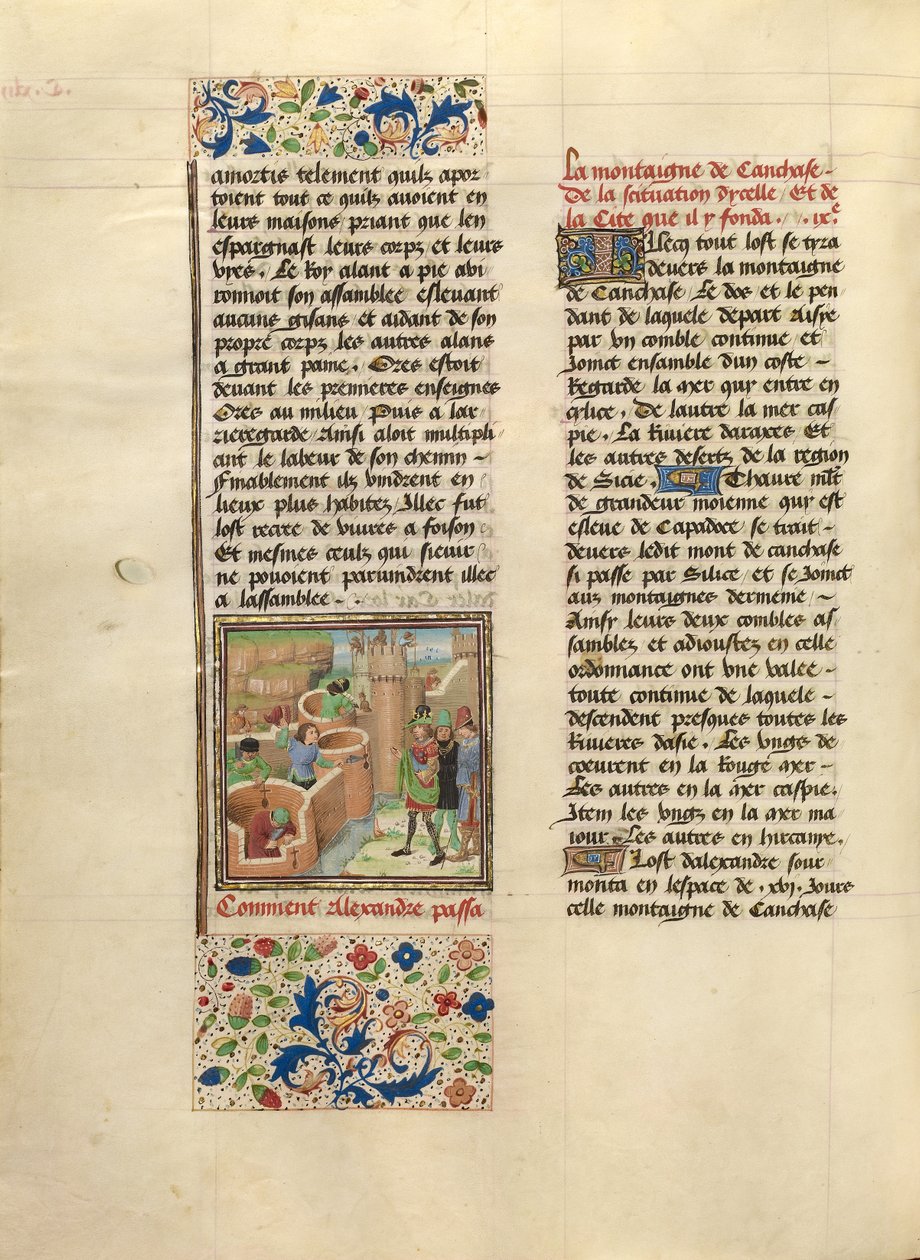 amortis telement quilz apor
toient tout ce quilz auoient en
leurs maisons/ priant que len
espargnast leurs corpz et leurs
vyes. Le Roy alant a pie avi
ronnoit son assamblee esleuant
aucuns gisans/ et aidant de son
propre corpz les autres alans
a grant paine. Ores estoit
deuant les premieres enseignes
Ores au milieu/ Puis a lar
rieregarde/ Ainsi aloit multipli
ant le labeur de son chemin -
Finablement ilz vindrent en
lieux plus habitez/ Illec fut
lost recree de viures a foison
Et mesmes ceulz qui sieuir
ne pouoient paruindrent illec
a lassamblee - .
Comment Alexandre passa
La montaigne de Canchase -
De la scituation dycelle/ Et de
la Cite que il y fonda. . ix.e
Illecq tout lost se tyra
deuers la montaigne
de Canchase/ Le dos et le pen
dant de laquele depart Aisye
par vn comble continue et
Joinct ensamble dun coste -
Regarde la mer quy entre en
cylice. De lautre la mer cas
pie. La Riuiere daraxes Et
les autres desertz de la region
de Sicie. Thaure mlt
de grandeur moienne quy est
esleue de Capadoce se trait -
deuers ledit mont de canchase
si passe par Silice/ et se Joinct
aux montaignes dermenie/ -
Ainsy leurs deux combles as
samblez et adioustez en celle
ordonnance ont vne valee -
toute continue de laquele -
descendent presques toutes les
Riuieres dasie. Les vngs de
coeurent en la Rouge mer -
Les autres en la mer caspie.
Item les vngz en la mer ma
iour. Les autres en hircanye.
Lost dalexandre sour
monta en lespace de .xvj. Jours
celle montaigne de Canchase